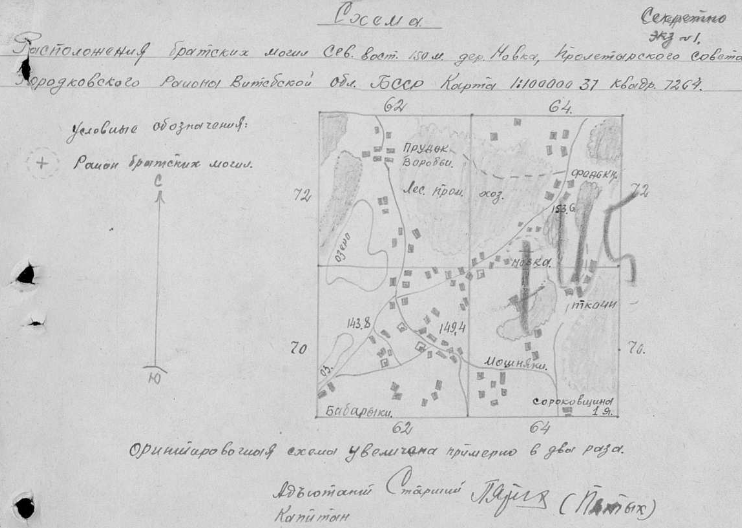 Схема
Секретно
экз №1.
Расположения братских могил Сев. вост. 150 м. дер. Новка, Пролетарского Совета
Городковского Района Витебской обл. БССР Карта 1:100000 37 квадр. 7264.
Условные обозначения:
Район братских могил.
С
Ю
62
64.
Прудок
Воробьи.
Лес. Пром. хоз.
72
72
153,6
озеро
Новка.
Ткачи
143,8
149,4
70
70.
Мошняки.
оз.
Бабарыки.
Сороковщина
1 я.
62
64
Ориинтировочная схема увеличена примерно в два раза.
Адъютант Старший
Капитан
(Пятых)